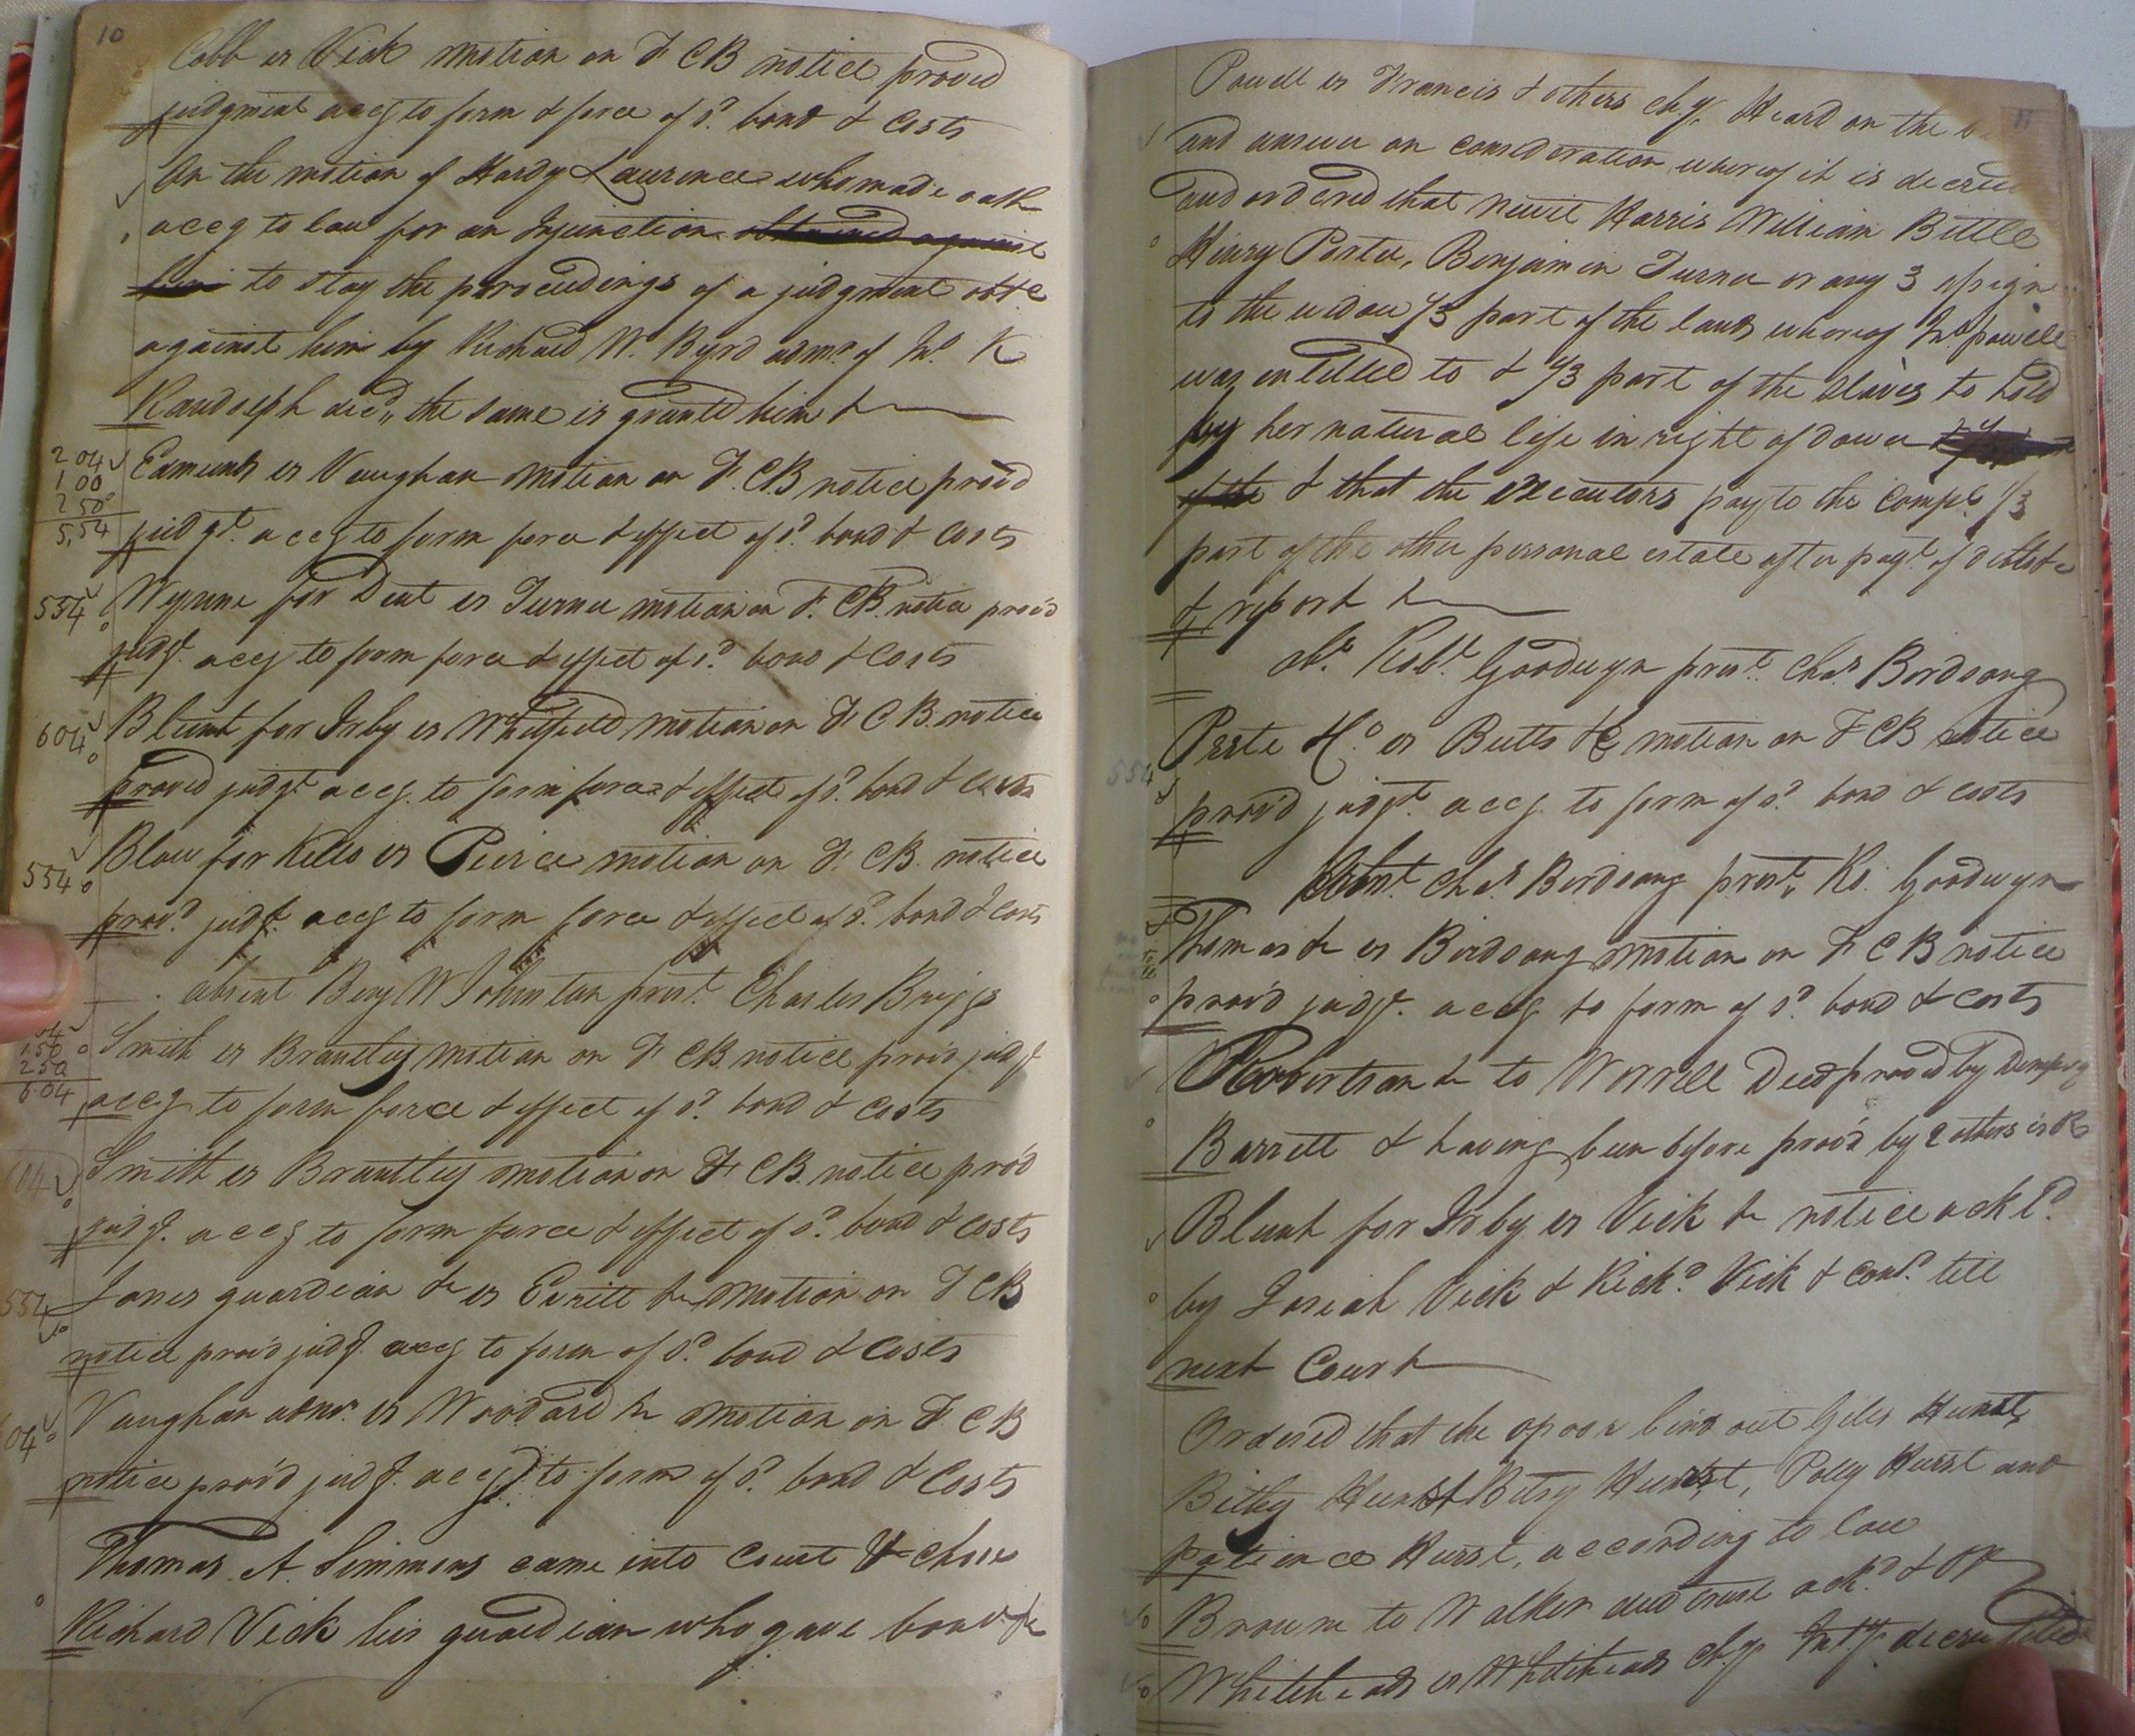 10
Cobb vs Vick motion on F CB notice proved
judgment accg to form & force of sd. bond & Costs
On the motion of Hardy Laurence who made oath
accg to law for an Injunction obtained against
him to stay the proceedings of a judgment obtd
against him by Richard W. Byrd admr. of K
Randolph decd,, the same is granted him &
204
100
250
5,54
Edmunds vs Vaughan motion on F. CB notice prov'd
judgt. accg to form force & effect of sd. bond & Costs
554
Wynne for Dent vs Turner motion on F. CB. notice prov'd
judgt. accg to form force & effect of sd. bond & Costs
604
Blunt for Irby vs Whitfield motion on F CB. notice
proved judgt accg. to form force & effect of sd. bond & costs
554
Blow for Kello vs Peirce motion on F. CB. notice
provd. judgt. accg to form force & effect of sd. bond & Costs
absent Benj W Johnston prest. Charles Briggs
04
150
250
5.04
Smith vs Brantley motion on F CB. notice prov'd judgt
accg to form force & effect of sd. bond & Costs
Smith vs Brantley motion on F. CB. notice prov'd
judgt. accg to form force & effect of sd. bond & Costs
554
Jones guardian &c vs Evritt &c motion on F CB
notice prov'd judgt. accg to form of sd. bond & Costs
04
Vaughan admr. vs Woodard &c motion on F. CB
notice prov'd judgt. accg to form of sd. bond & Costs
Thomas A. Simmons came into Court & chose
Richard Vick his guardian who gave bond &c
11
Powell vs Francis & others chy. Heard on the
and answer on consideration whereof it is decreed
and ordered that Newit Harris William Bittle
Henry Porter, Benjamin Turner or any 3 assign
to the widow 1/3 part of the lands whereof Powell
was entitled to & 1/3 part of the slaves to hold
her natural life in right of dower
of the & that the executors pay to the Compt. 1/3
part of the other personal estate after payt. of debts &c
& report &
abt. Robt. Goodwyn prest. Chas. Birdsong
554
Peete vs Butts &c motion on F CB notice
prov'd judgt. accg. to form of sd. bond & costs
Absnt. Chas. Birdsong prest,, Ro. Goodwyn
Thomas &c vs Birdsong motion on F CB notice
prov'd judgt. accg to form of sd. bond & costs
Robertson &c to Worrell Deed proved by Dempsey
Barrett & having been before prov'd by 2 others is OR
Blunt for Irby vs Vick &c notice ackd.
by Josiah Vick & Richd. Vick & contd. till
next Court
Ordered that the opoor bind out Giles Hurst
Bithy Hurst Betsy Hurst, Polly Hurst and
Patience Hurst, according to law
Browne to Walker deed trust ackd. & OR
Whitehead vs Whitehead chy. decree